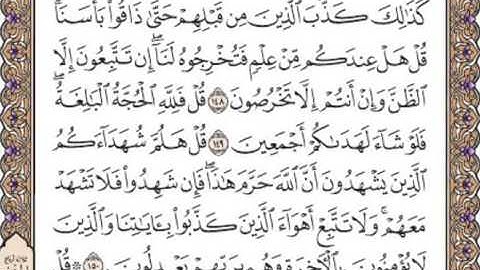 كَذَٰلِكَ كَذَّبَ ٱلَّذِينَ مِن قَبۡلِهِمۡ حَتَّىٰ ذَاقُواْ بَأۡسَنَاۗ
قُلۡ هَلۡ عِندَكُم مِّنۡ عِلۡمٖ فَتُخۡرِجُوهُ لَنَآۖ إِن تَتَّبِعُونَ إِلَّا
ٱلظَّنَّ وَإِنۡ أَنتُمۡ إِلَّا تَخۡرُصُونَ ١٤٨ قُلۡ فَلِلَّهِ ٱلۡحُجَّةُ ٱلۡبَٰلِغَةُۖ
فَلَوۡ شَآءَ لَهَدَىٰكُمۡ أَجۡمَعِينَ ١٤٩ قُلۡ هَلُمَّ شُهَدَآءَكُمُ
ٱلَّذِينَ يَشۡهَدُونَ أَنَّ ٱللَّهَ حَرَّمَ هَٰذَاۖ فَإِن شَهِدُواْ فَلَا تَشۡهَدۡ
مَعَهُمۡۚ وَلَا تَتَّبِعۡ أَهۡوَآءَ ٱلَّذِينَ كَذَّبُواْ بِـَٔايَٰتِنَا وَٱلَّذِينَ
لَا يُؤۡمِنُونَ بِٱلۡأٓخِرَةِ وَهُم بِرَبِّهِمۡ يَعۡدِلُونَ ١٥٠ ۞ قُلۡ